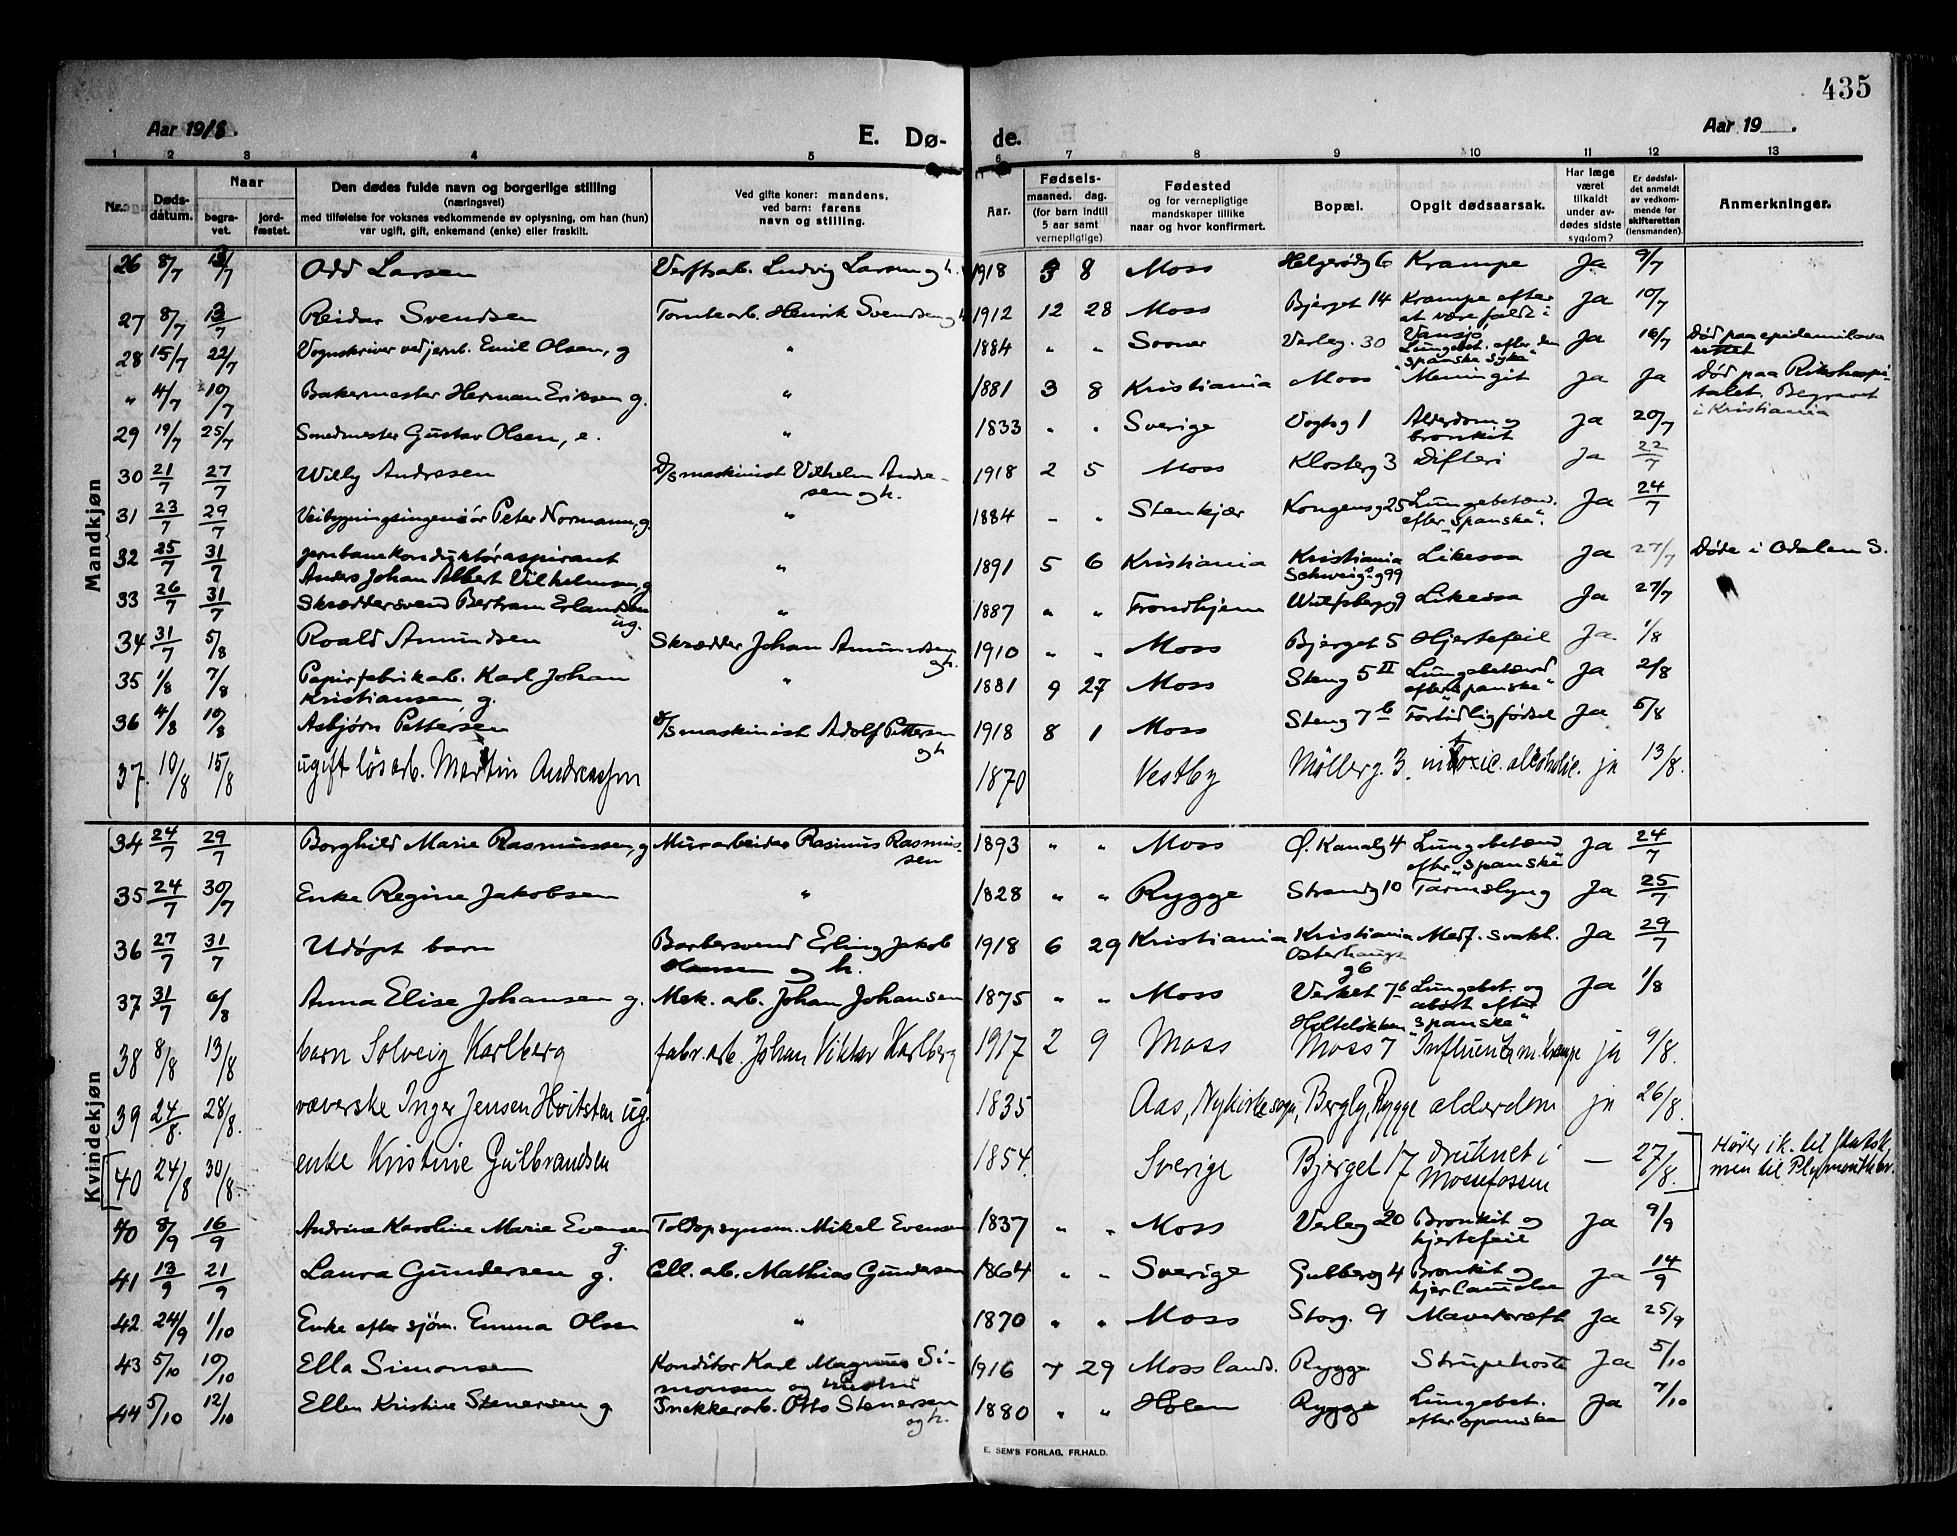 435
Aar 1918. E. Dø- de. Aar 19 .
1 2 3 4 5 6 7 8 9 10 11 12 13
Nr. Døds-datum. Naar begra-vet. jord-fæstet. Den dødes fulde navn og borgerlige stilling (næringsvei) med tilføielse for voksnes vedkommende av oplysning, om han (hun) var ugift, gift, enkemand (enke) eller fraskilt. Ved gifte koner: mandens, ved barn: farens navn og stilling. Aar. Fødsels- maaned. dag. (for barn indtil 5 aar samt vernepligtige) Fødested og for vernepligtige mandskaper tillike naar og hvor konfirmert. Bopæl. Opgit dødsaarsak. Har læge været tilkaldt under av-dødes sidste sygdom? Er dødsfal-det anmeldt av vedkom-mende for skifteretten (lensmanden). Anmerkninger.
Mandkjøn
26 8/7 13/7 Odd Larsen Verftsarb. Ludvig Larsen og h. 1918 3 8 Moss Helgerødg 6 Krampe Ja 9/7
27 8/7 13/7 Reidar Svendsen Tomtearb. Henrik Svendsen og h 1912 12 28 Moss Bjerget 14 Krampe efter at være faldt i Vansjø Ja 10/7
28 15/7 22/7 Vognskriver ved jernb. Emil Olsen, g " 1884 " " Sooner Verleg. 30 Lungebet. efter den "spanske syke" Ja 16/7 Død paa epidemilasarettet
" 4/7 10/7 Bakermester Herman Eriksen g. " 1881 3 8 Kristiania Moss Meningit Ja Ja Død paa Rikshospitalet. Begravet i Kristiania
29 19/7 25/7 Smedmester Gustav Olsen, e. " 1833 " " Sverige Vogtsg 1 Alderdom og bronkit Ja 20/7
30 21/7 27/7 Willy Andresen D/S maskinist Vilhelm Andre-sen og h. 1918 2 5 Moss Klosterg 3 Difteri Ja 22/7
31 23/7 29/7 Veibygningsingeniør Peter Normann, g. " 1884 " " Stenkjær Kongensg 25 Lungebetænd. efter "spanske". Ja 24/7
32 25/7 31/7 Jernbanekonduktøraspirant Anders Johan Albert Vilhelmsen, g " 1891 5 6 Kristiania Kristiania Schweigsg 99 Likessa Ja 27/7 Døde i Odalen S.
33 26/7 31/7 Skræddersvend Bertram Erlandsen ug. " 1887 " " Trondhjem Wulfsbergg 9 Likessa Ja 27/7
34 31/7 5/8 Roald Amundsen Skrædder Johan Amundsen og h. 1910 " " Moss Bjerget 5 Hjertefeil Ja 1/8
35 1/8 7/8 Papirfabrikarb. Karl Johan Kristiansen g. " 1881 9 27 Moss Steng 5 II Lungebetænd efter "spanske" Ja 2/8
36 4/8 10/8 Asbjørn Pettersen D/S maskinist Adolf Pettersen og h 1918 8 1 Moss Steng 7 b Fortidlig fødsel Ja 5/8
37. 10/8 15/8 ugift løsarb. Martin Andreassen 1870 Vestby Møllerg. 3. intoxic. alcoholic. ja 13/8.
Kvindekjøn
34 24/7 29/7 Borghild Marie Rasmussen, g Murarbeider Rasmus Rasmus-sen 1893 " " Moss Ø. Kanalg 4 Lungebetænd efter "spanske" Ja 24/7
35 24/7 30/7 Enke Regine Jakobsen " 1828 " " Rygge Strandg 10 Tarmslyng Ja 25/7
36 27/7 31/7 Udøpt barn Barbersvend Erling Jakob Hansen og h. 1918 6 29 Kristiania Kristiania Osterhausg 6 Medf. svakh. Ja 29/7
37 31/7 6/8 Anna Elise Johansen g. Mek. arb. Johan Johansen 1875 " " Moss Verket 7 b Lungebet. og abort efter "spanske" Ja 1/8
38 8/8 13/8 barn Solveig Karlberg fabr.arb. Johan Viktor Karlberg 1917 2 9 Moss Holteløkken Moss 7 Influenza m. krampe ja 9/8.
39 24/8. 28/8. væverske Inger Jensen Hvitsten ug. 1835 Aas, Nykirke sogn, Bergly, Rygge alderdom ja 26/8.
40 24/8 30/8. enke Kristine Gulbrandsen 1854. Sverige Bjerget 17 druknet i Mossefossen — 27/8. Hører i k. til statsk. men til Plymouthbr.
40 8/9 16/9 Andrine Karoline Marie Evensen g. Toldopsynsm. Mikel Evensen 1837 " " Moss Verleg 20 Bronkit og hjertefeil Ja 9/9
41 13/9 21/9 Laura Gundersen g. Cell. arb. Mathias Gundersen 1864 " " Sverige Gulbergg 4 Bronkit og hjerlammelse Ja 14/9
42 24/9 1/10 Enke efter sjøm. Emma Olsen " 1870 " " Moss Storg. 9 Mavekræft Ja 25/9
43 5/10 10/10 Ella Simonsen Konditor Karl Magnus Si-monsen og hustru 1916 7 29 Moss lands. Rygge Strupehoste Ja 5/10
44 5/10 12/10 Ellen Kristine Stenersen g Snekkerarb. Otto Stenersen og h. 1880 " " Hölen Rygge Lungebet. efter spanske Ja 7/10
E. SEM'S FORLAG, FR.HALD.